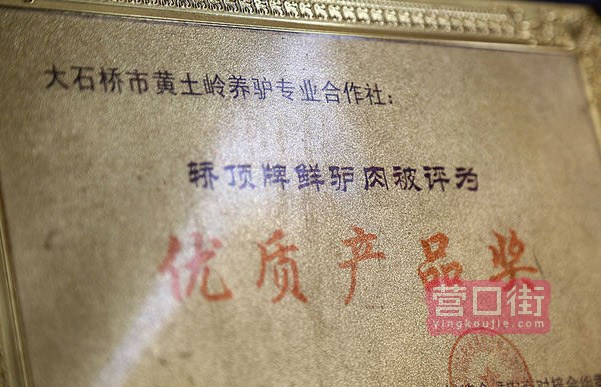 大石桥市黄土岭养驴专业合作社：
轿顶牌鲜驴肉被评为
优质产品奖
营口街
yingkoujie.com